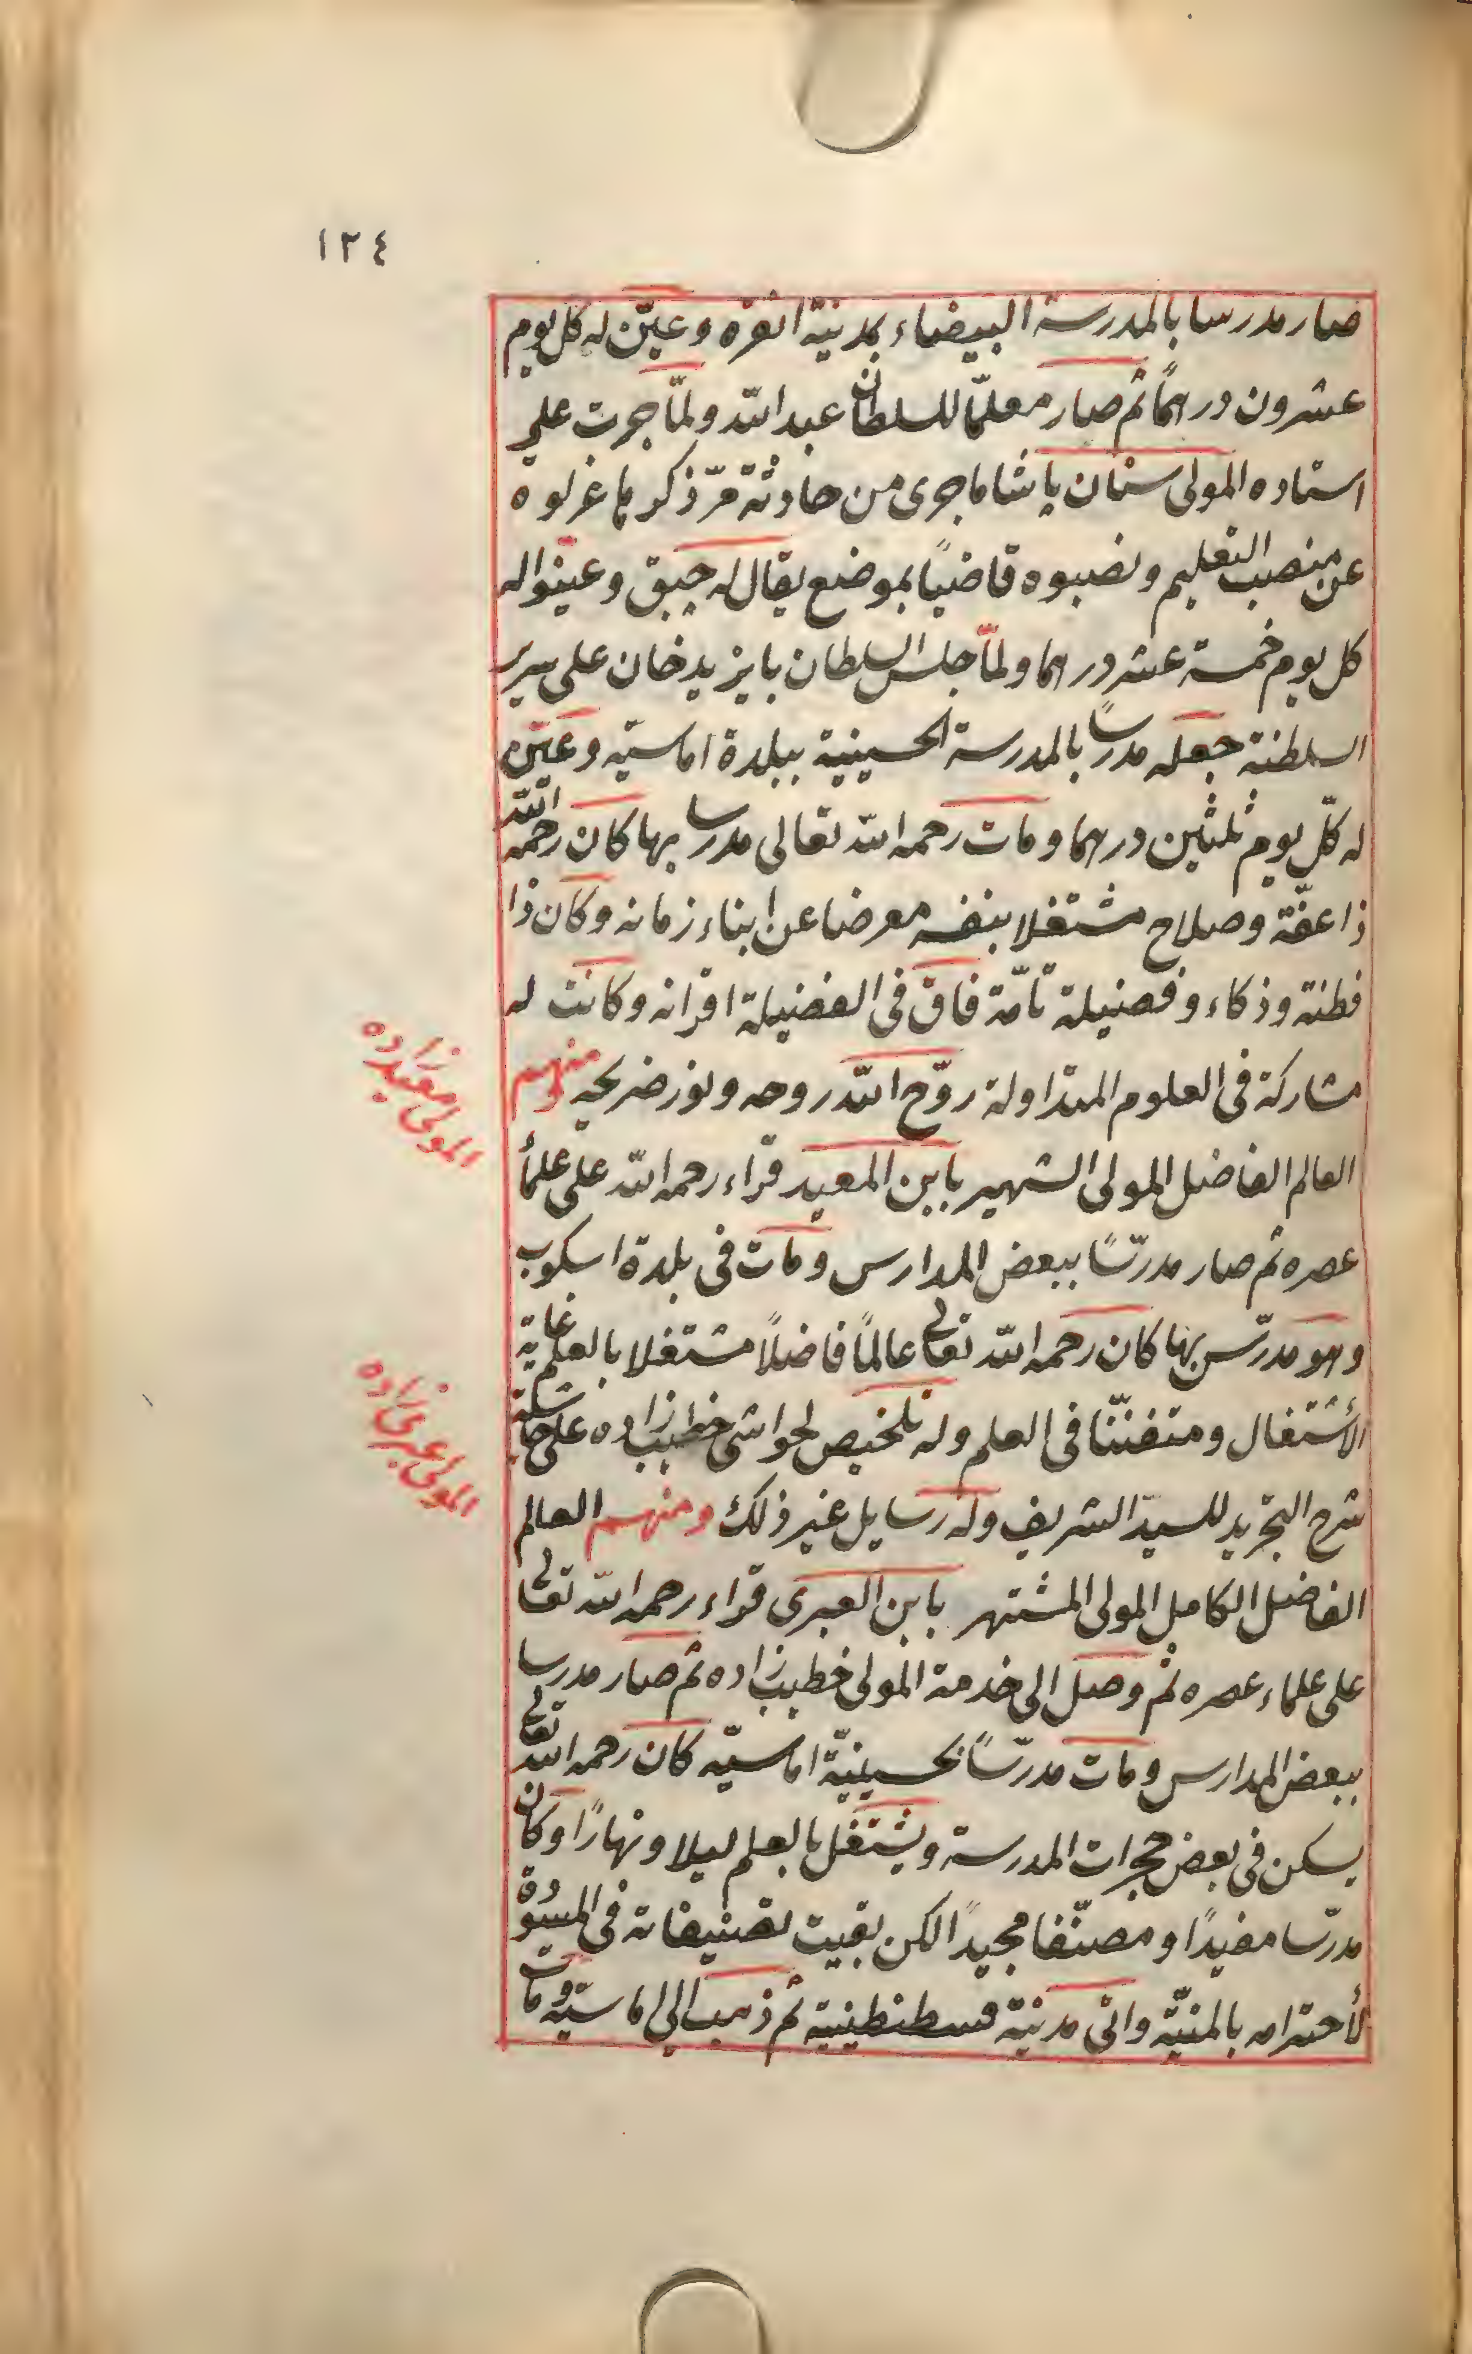 ١٢٤
صار مدرسا بالمدرسة البيضاء بمدينة انقره وعيّن له كل يوم
عشرون درهمًا ثم صار معلّما للسلطان عبد الله ولمّا جرت على
استاده المولى سنان پاشا ما جرى من حادثة مرّ ذكرها عزلوه
عن منصب التعليم ونصبوه قاضيًا بموضع يقال له چبق وعيّنوا له
كل يوم خمسة عشر درهما ولمّا جلس السلطان بايزيد خان على سرير
السلطنة جعله مدرسًا بالمدرسة الحسينية ببلدة اماسيّه وعيّن
له كلّ يوم ثلثين درهما ومات رحمه الله تعالى مدرسا بها كان رحمه الله
ذا عفّة وصلاح مشتغلا بنفسه معرضا عن ابناء زمانه وكان ذا
فطنة وذكاء وفضيلة تامّة فاق في الفضيلة اقرانه وكانت له
مشاركة في العلوم المتداولة روّح الله روحه ونور ضريحه ومنهم
المولى معيد زاده
العالم الفاضل المولى الشهير بابن المعيد قراء رحمه الله على علمأ
عصره ثم صار مدرّسًا ببعض المدارس ومات في بلدة اسكوب
وهو مدرّس بها كان رحمه الله تعالى عالمًا فاضلًا مشتغلا بالعلم غاية
الأشتغال ومتفنّنا في العلم وله تلخيص لحواشى خطيب زاده على حاشية
شرح التجريد للسيد الشريف وله رسايل غير ذلك ومنهم العالم
المولى عبرى زاده
الفاضل الكامل المولى المشتهر بابن العبرى قراء رحمه الله تعالى
على علماء عصره ثم وصل الى خدمة المولى خطيب زاده ثم صار مدرسا
ببعض المدارس ومات مدرّسًا بحسينيّة اماسيّه كان رحمه الله تعالى
يسكن في بعض حجرات المدرسة ويشتغل بالعلم ليلا ونهارًا وكان
مدرّسا مفيدًا ومصنّفا مجيدًا لكن بقيت تصنيفاته في المسودة
لأحترامه بالمنيّة واتى مدينة قسطنطينية ثم ذهب الى اماسيّه ومات